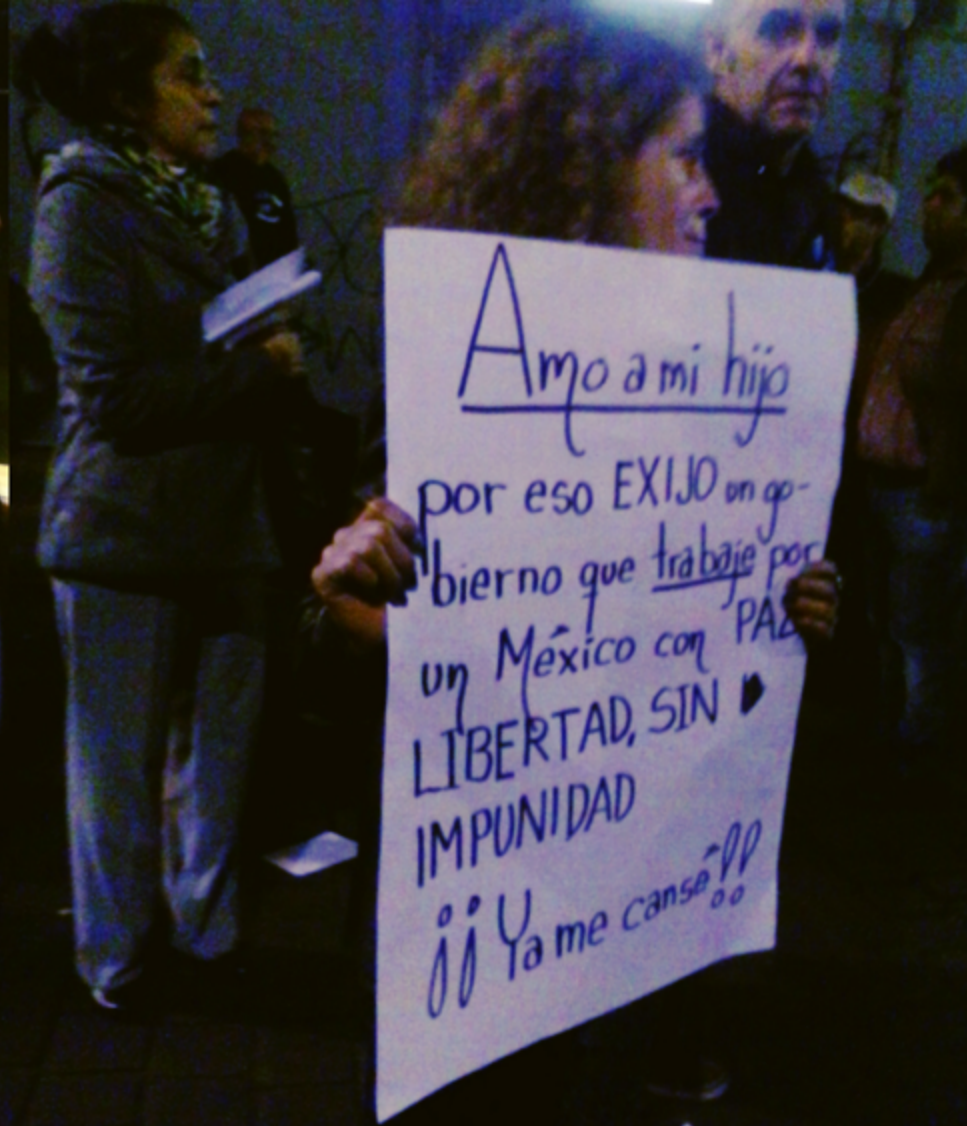 Amo a mi hijo
por eso EXIJO un go-
bierno que trabaje por
un México con PAZ
LIBERTAD, SIN
IMPUNIDAD
¡¡Ya me cansé!!